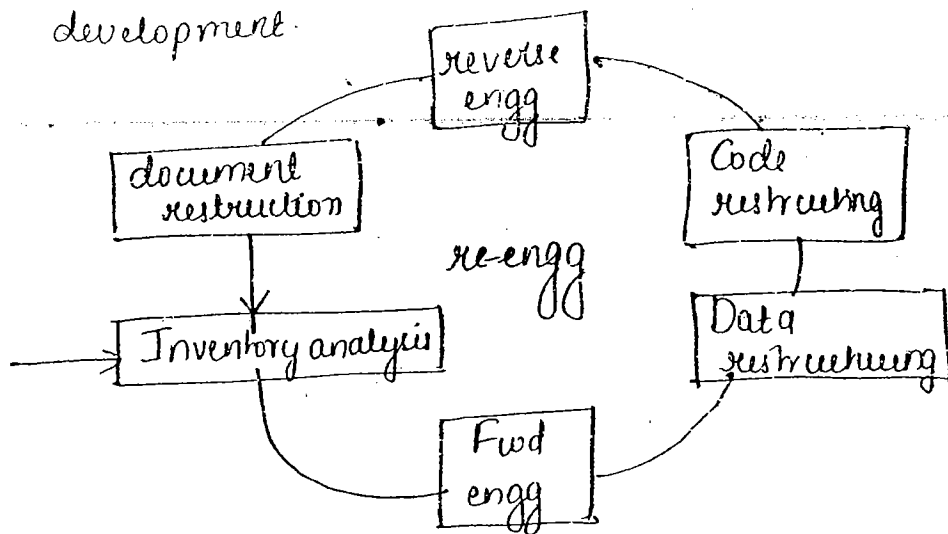 development.
reverse
engg
document
restruction
Code
restructing
re-engg
Inventory analysis
Data
restructuring
Fwd
engg